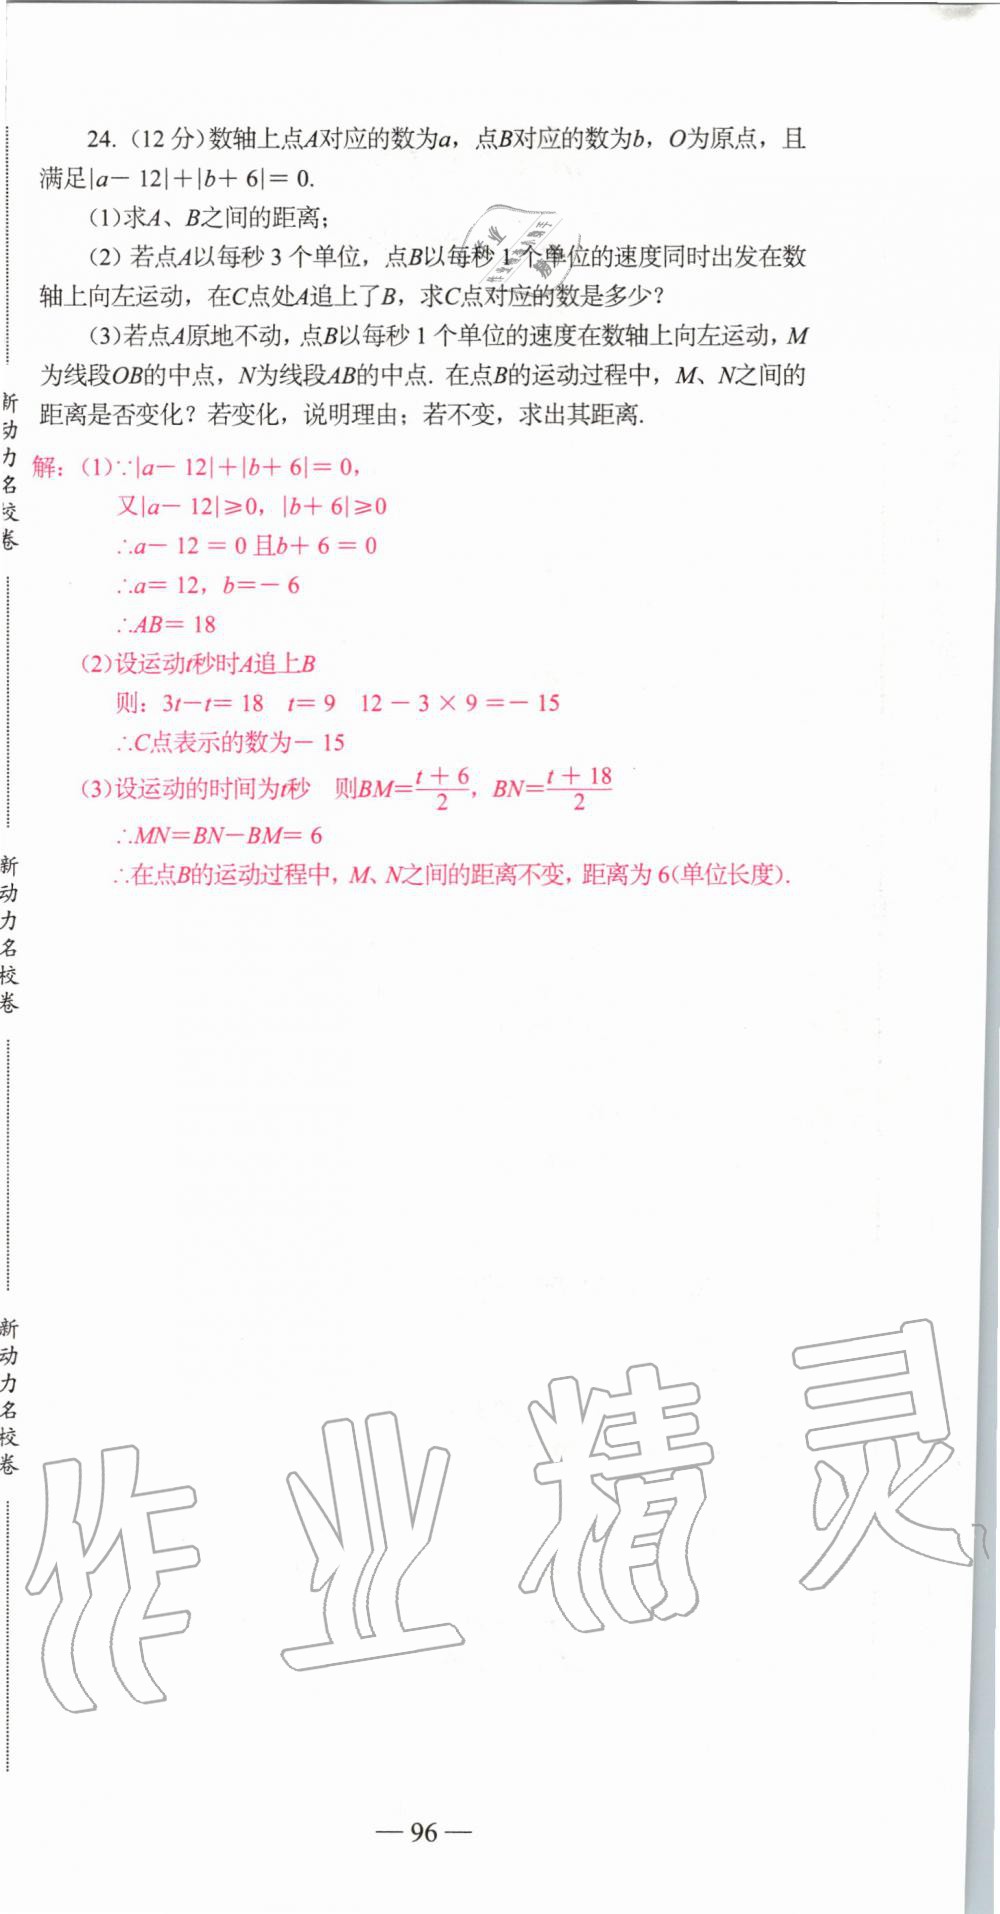 24.（12 分）数轴上点A对应的数为a，点B对应的数为b，O为原点，且
满足|a－12|＋|b＋6|＝0.
（1）求A、B之间的距离；
（2）若点A以每秒 3 个单位，点B以每秒 1 个单位的速度同时出发在数
轴上向左运动，在C点处A追上了B，求C点对应的数是多少？
（3）若点A原地不动，点B以每秒 1 个单位的速度在数轴上向左运动，M
为线段OB的中点，N为线段AB的中点. 在点B的运动过程中，M、N之间的
距离是否变化？若变化，说明理由；若不变，求出其距离.
解：（1）∵|a－12|＋|b＋6|＝0，
又|a－12|≥0，|b＋6|≥0
∴a－12＝0且b＋6＝0
∴a＝12，b＝－6
∴AB＝18
（2）设运动t秒时A追上B
则：3t－t＝18　t＝9　12－3×9＝－15
∴C点表示的数为－15
（3）设运动的时间为t秒　则BM＝(t＋6)/2，BN＝(t＋18)/2
∴MN＝BN－BM＝6
∴在点B的运动过程中，M、N之间的距离不变，距离为 6（单位长度）.
新动力名校卷
新动力名校卷
新动力名校卷
作业精灵
— 96 —